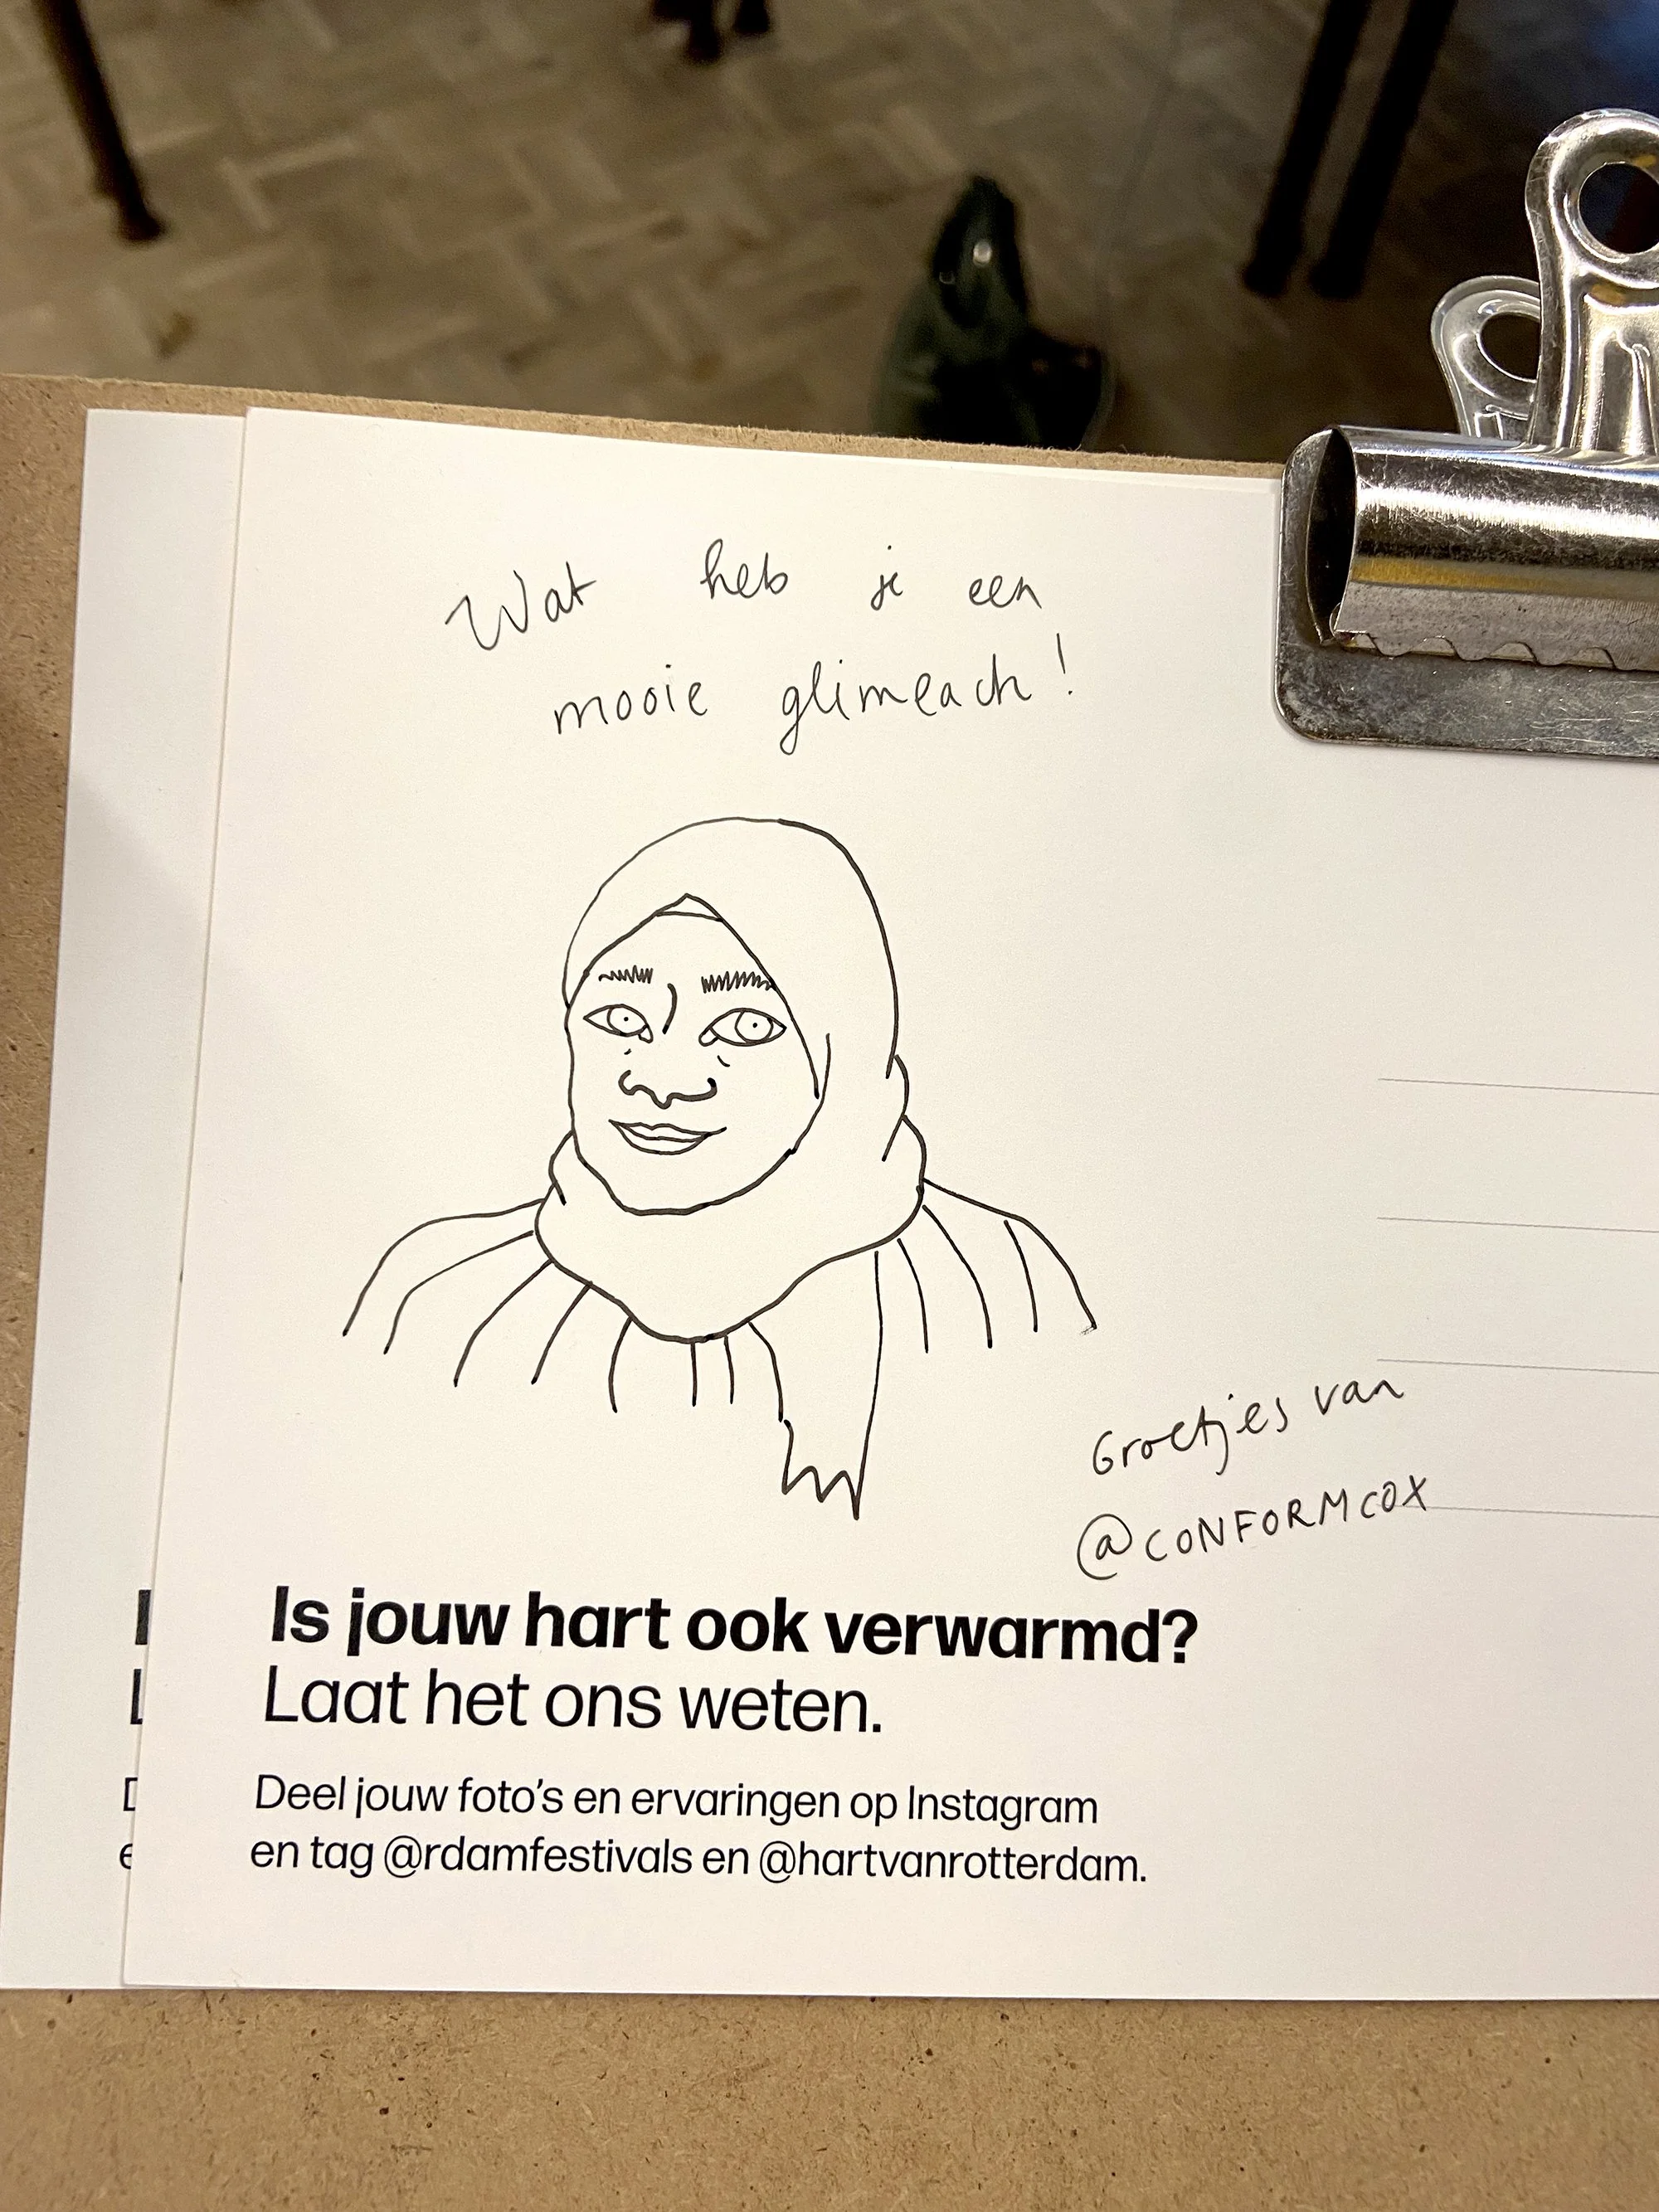 Wat heb je een
mooie glimlach!
Groetjes van
@CONFORMCOX
Is jouw hart ook verwarmd?
Laat het ons weten.
Deel jouw foto's en ervaringen op Instagram
en tag @rdamfestivals en @hartvanrotterdam.